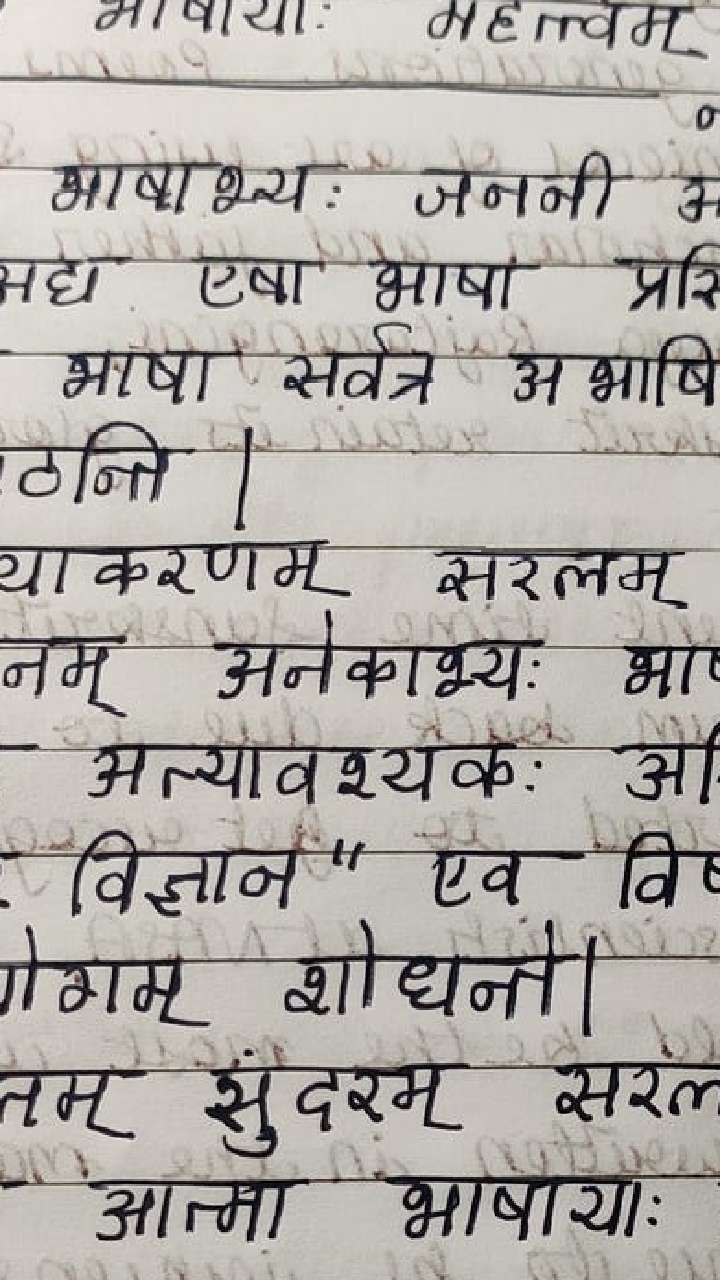 भाषायाः महत्वम्
भाषाभ्यः जननी
अद्य एषा भाषा
भाषा सर्वत्र अभाषि
ठन्ति |
याकरणम् सरलम्
नम् अनेकाभ्यः
अत्यावश्यकः
विज्ञान" एव
गम् शोधन्ते|
तम् सुंदरम् सरल
आत्मा भाषायाः